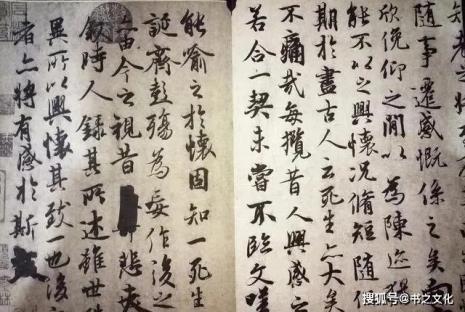 知老之將
隨事遷感慨係之矣向
欣俛仰之閒以為陳迹
能不以之興懷況脩短隨化
期於盡古人云死生亦大矣
不痛哉每攬昔人興感之
若合一契未嘗不臨文嗟
能喻之於懷固知一死生
誕齊彭殤為妄作後之
由今之視昔悲夫
敘時人錄其所述雖世殊
異所以興懷其致一也後
者亦將有感於斯文
搜狐号@书之文化